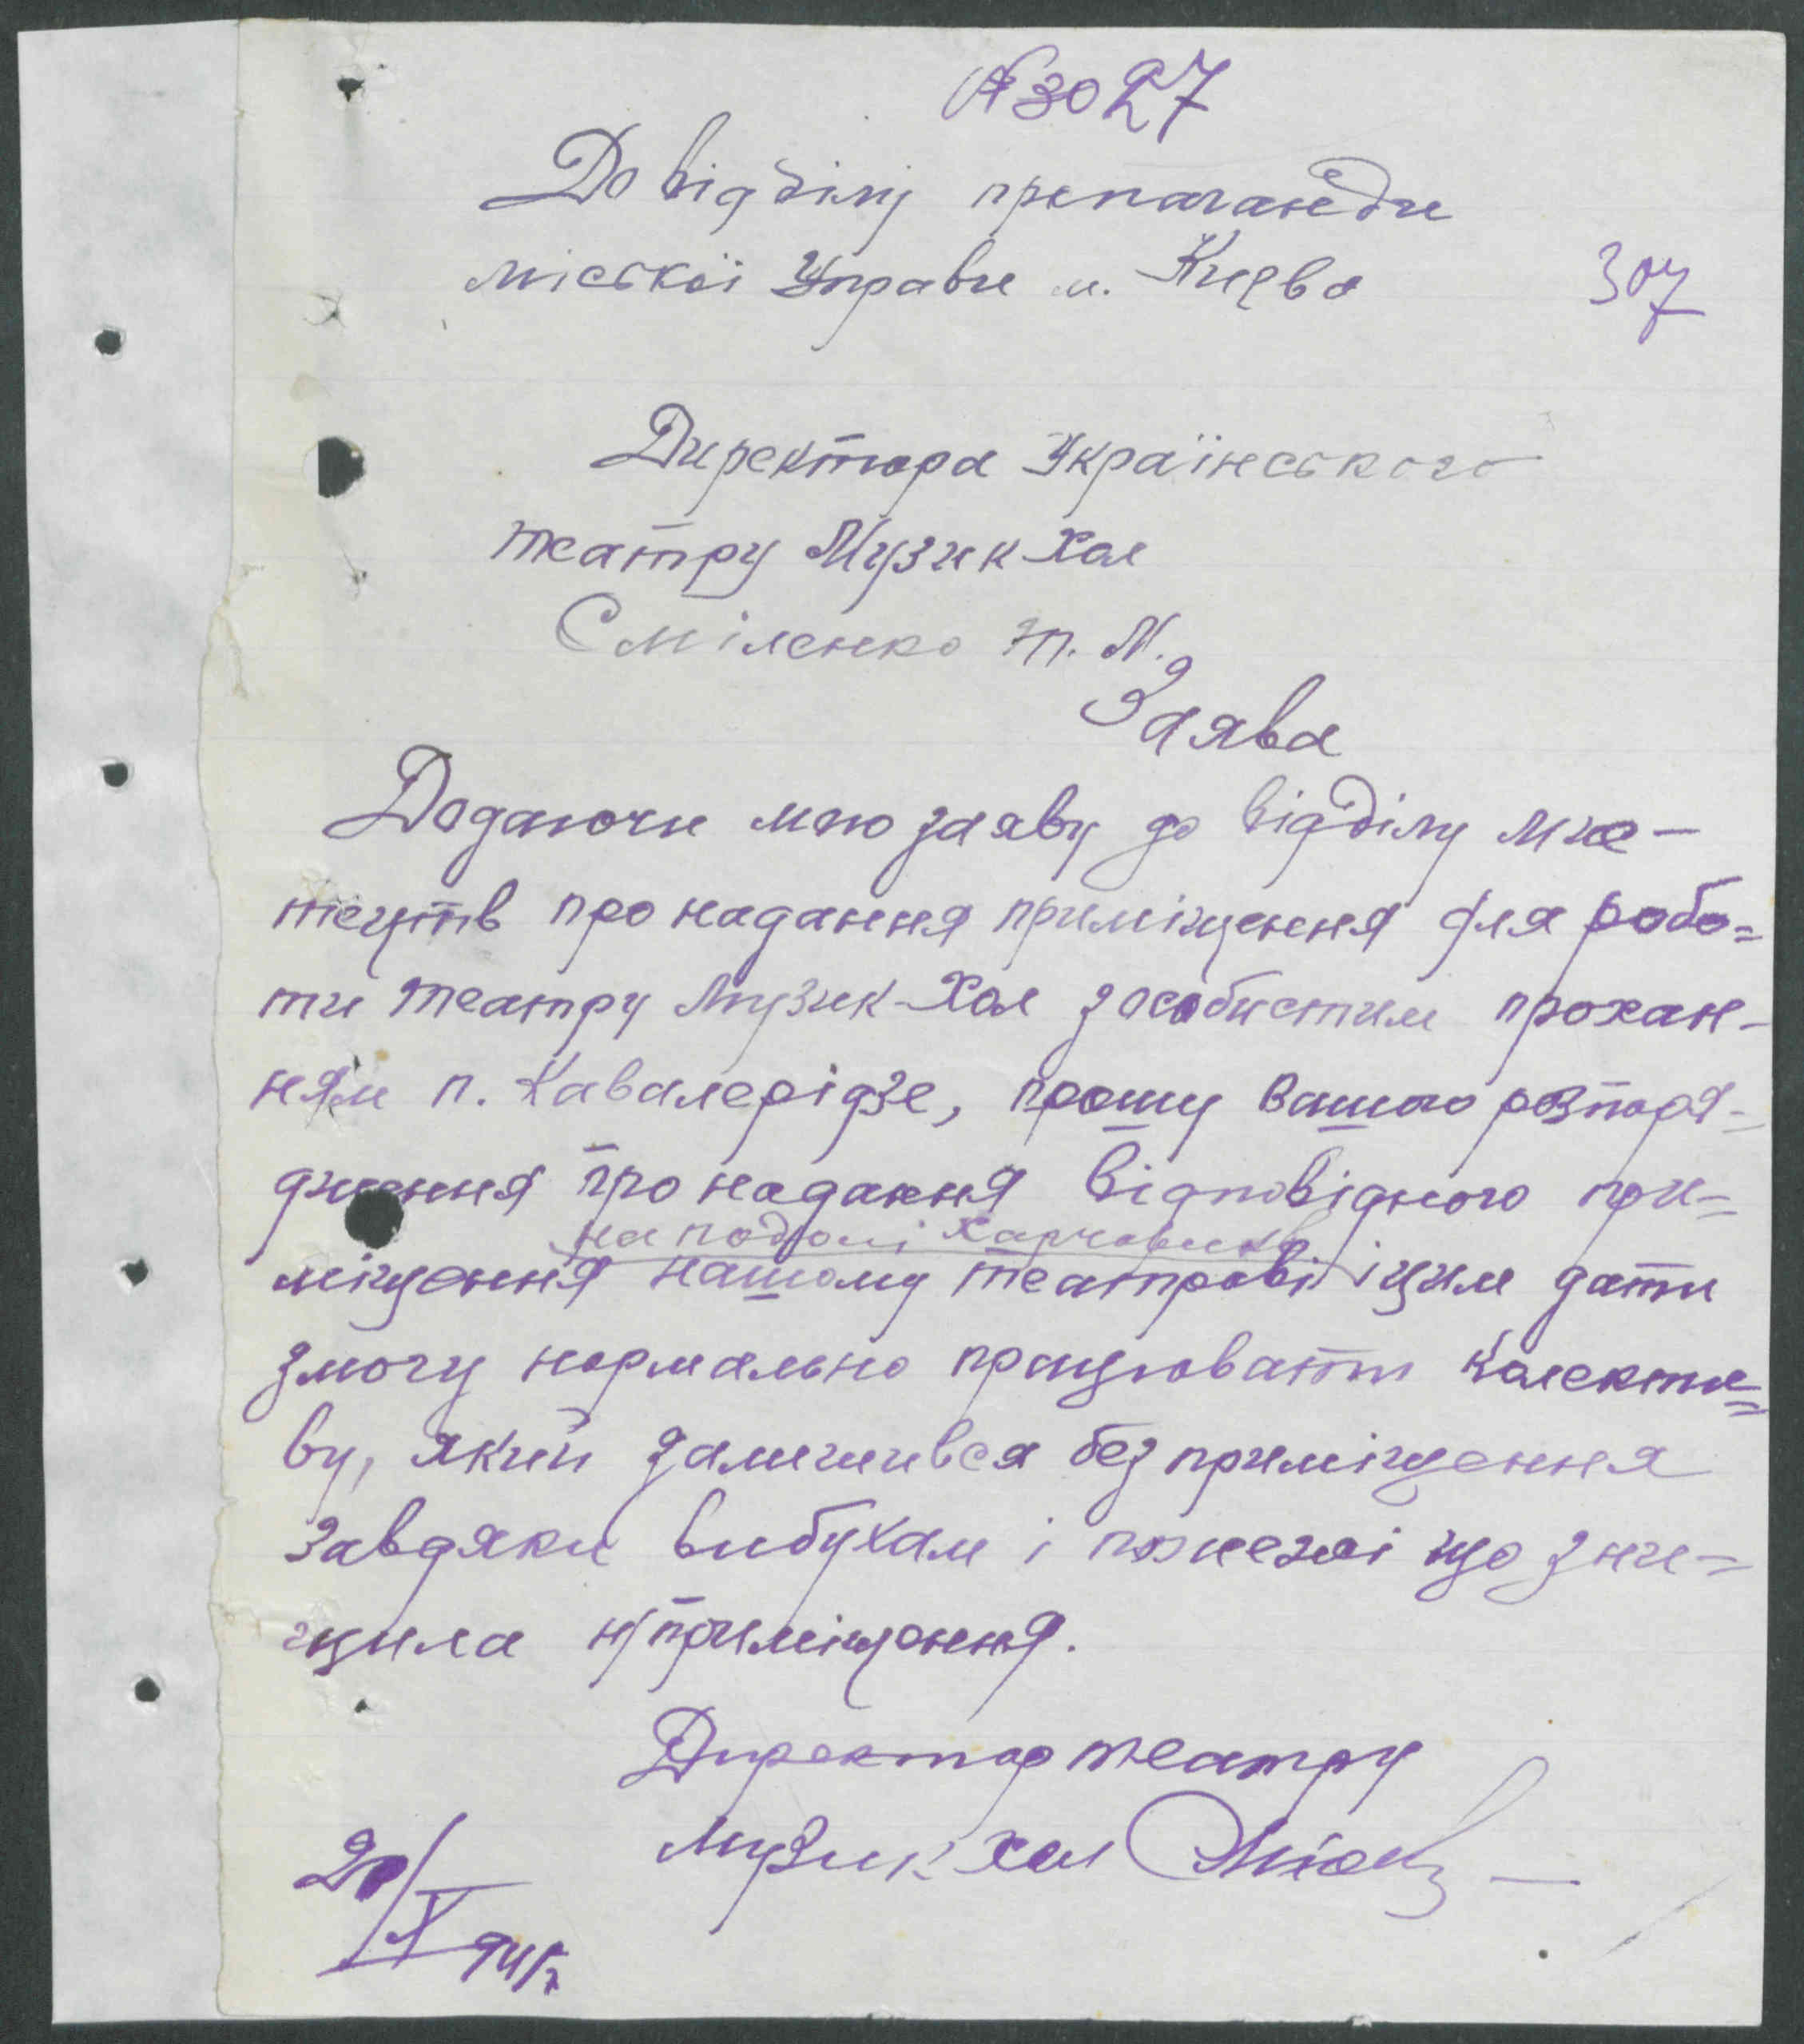 № 3027
До відділу препаганди
міської Управи м. Києва
307
Директора Українського
театру Музик-Хол
Сміленко Т. М.
Заява
Додаючи мою заяву до відділу мис-
тецтв про надання приміщення для робо=
ти театру Музик-Хол з особистим прохан-
ням п. Кавалерідзе, прошу Вашого розпоря-
дження про надання відповідного при=
на подолі Харчовиків
міщення нашому театрові і цим дати
змогу нормально працювати колекти=
ву, який залишився без приміщення
завдяки вибухам і пожежі що зни=
щила н/приміщення.
Директор театру
Музик хол
20/X 941 р.